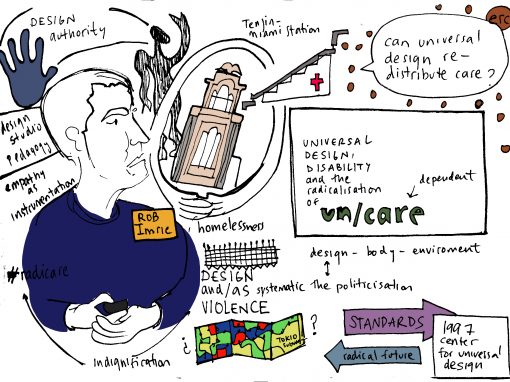 DESIGN
authority
Tenjin-
minami station
erc
can universal
design re-
distribute care?
design
studio
pedagogy
empathy
as
instrumentation
UNIVERSAL
DESIGN,
DISABILITY
and the
radicalisation
OF un/care
dependent
ROB
Imrie
homelessness
#radicare
design - body - enviroment
DESIGN
and/as systematic the politicisation
VIOLENCE
¿ ?
TOKIO
Subway
indignification
STANDARDS
radical future
1997
center
for universal
design